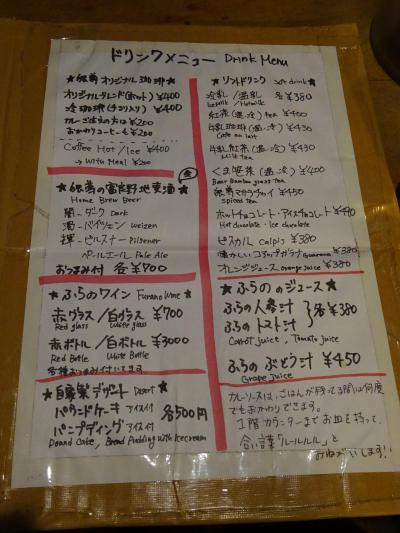 ドリンクメニュー Drink Menu
★ オリジナル珈琲 ★
オリジナルブレンド(ホット) ¥400
冷珈琲(チコリ入り) ¥400
カレーご注文の方は ¥200
おかわりコーヒーも ¥200
Coffee Hot/Ice ¥400
→ With Meal ¥200
の富良野地麦酒
Home Brew Beer
闇-ダーク Dark
-バイツェン Weizen
-ピルスナー Pilsener
ペールエール Pale Ale
おつまみ付 各¥700
★ふらのワイン Furano Wine ★
赤グラス/白グラス ¥700
Red glass White glass
赤ボトル/白ボトル ¥3000
Red Bottle White Bottle
各種おつまみ付いてます
★自家製デザート Desert ★
パウンドケーキ アイス付
パンプディング アイス付
各500円
Pound Cake, Bread Pudding with Icecream
★ソフトドリンク soft drink★
冷乳/温乳 各¥380
Icemilk/Hotmilk
紅茶(温・冷) tea ¥400
牛乳珈琲(温・冷) ¥430
Cafe au lait
牛乳紅茶(温・冷) ¥430
Milk tea
くま笹茶(温・冷) ¥400
Bear Bamboo grass tea
マサラチャイ ¥450
spiced tea
ホットチョコレート・アイスチョコレート ¥470
Hot chocolate・Ice chocolate
ピスカル calpis ¥380
懐かしいコアップガラナ Guarana ¥380
オレンジジュース orange juice ¥380
★ふらののジュース★
ふらの人参汁
ふらのトマト汁
各¥380
Carrot juice, Tomato juice
ふらのぶどう汁 ¥450
Grape juice
カレーソースは、ごはんが残って3間は何度
でもおかわりできます。
1階カウンターまでお皿を持って、
合い言葉「ルールルル」と
おねがいします!